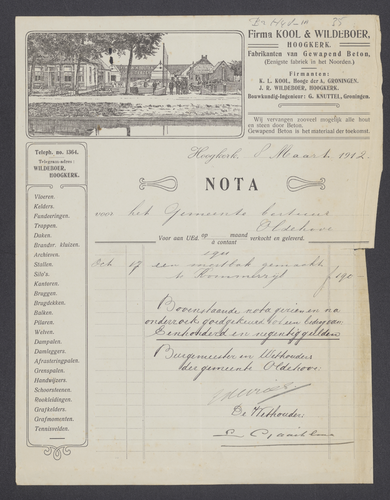 Firma KOOL & WILDEBOER,
HOOGKERK.
Fabrikanten van Gewapend Beton,
(Eenigste fabriek in het Noorden).
Firmanten:
K. L. KOOL, Hooge der A, GRONINGEN.
J. R. WILDEBOER, HOOGKERK.
Bouwkundig-Ingenieur: G. KNUTTEL, Groningen.
Wij vervangen zooveel mogelijk hout
en steen door Beton.
Gewapend Beton is het materiaal der toekomst.
Teleph. no. 1364.
Telegram-adres:
WILDEBOER,
HOOGKERK.
Hoogkerk, 8 Maart 1912
NOTA
voor het Gemeente bestuur
Oldehove
Voor aan UEd. op maand à contant verkocht en geleverd.
1911
Oct 17 een gemaakt
f 190 -
Bovenstaande nota gezien en na
onderzoek goedgekeurd tot een bedrag van
Eenhonderd en negentig gulden
Burgemeester en Wethouders
der gemeente Oldehove
De Wethouder
Vloeren.
Kelders.
Fundeeringen.
Trappen.
Daken.
Brandvr. kluizen.
Archieven.
Stallen.
Silo's.
Kantoren.
Bruggen.
Brugdekken.
Balken.
Pilaren.
Welven.
Dampalen.
Damleggers.
Afrasteringpalen.
Grenspalen.
Handwijzers.
Schoorsteenen.
Rookleidingen.
Grafkelders.
Grafmonumenten.
Tennisvelden.